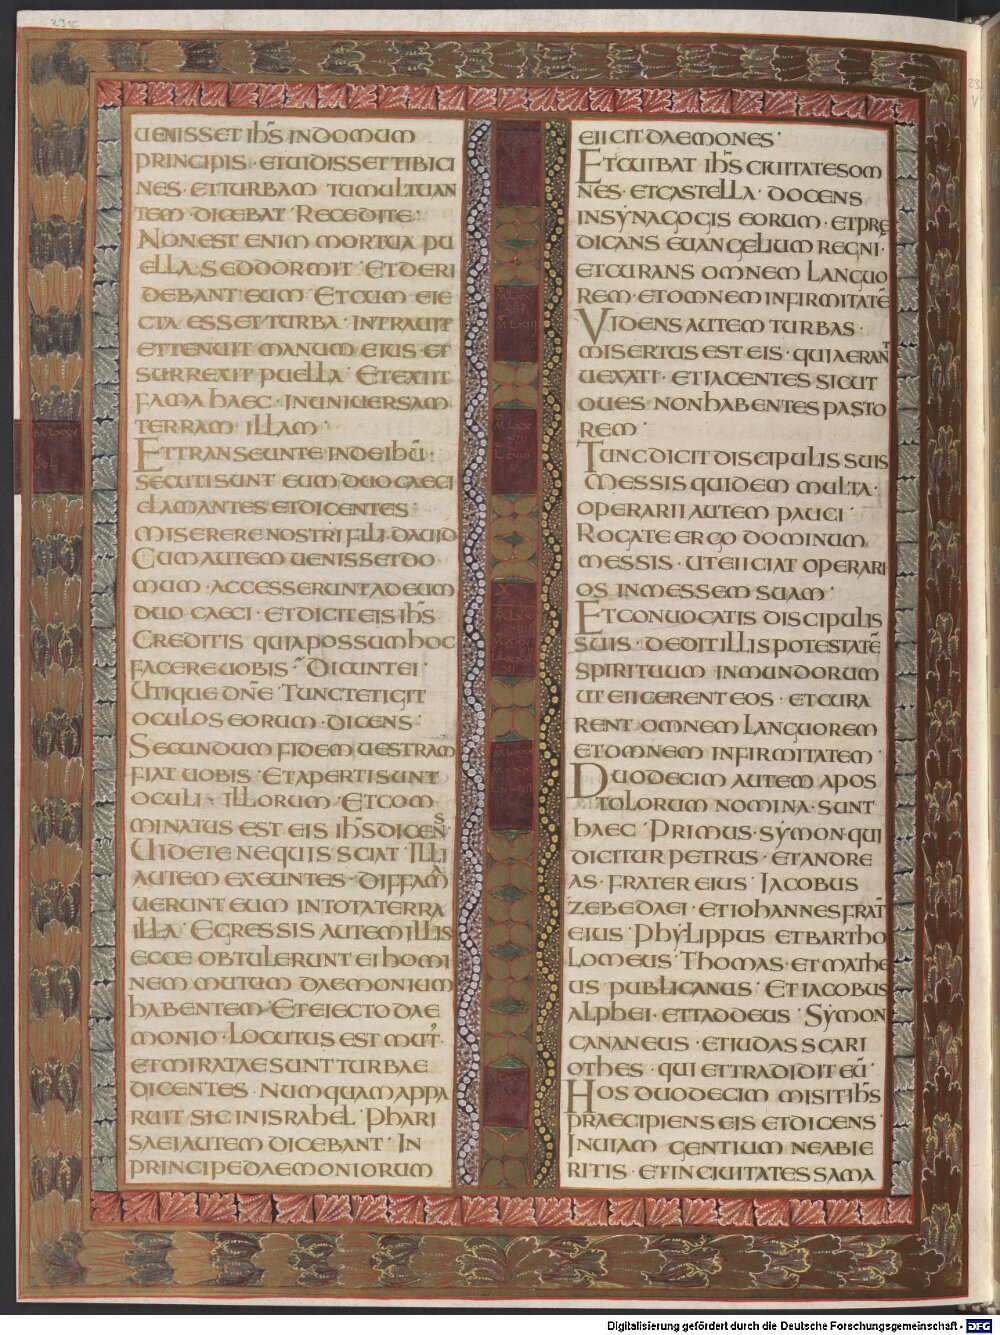 UENISSET IHS IN DOMUM
PRINCIPIS · ET UIDISSET TIBICI
NES · ET TURBAM TUMULTUAN
TEM · DICEBAT · RECEDITE ·
NON EST ENIM MORTUA PU
ELLA · SED DORMIT · ET DERI
DEBANT EUM · ET CUM EIE
CTA ESSET TURBA · INTRAUIT
ET TENUIT MANUM EIUS · ET
SURREXIT PUELLA · ET EXIIT
FAMA HAEC · IN UNIUERSAM
TERRAM ILLAM ·
ET TRANSEUNTE INDE IHU ·
SECUTI SUNT EUM DUO CAECI
CLAMANTES ET DICENTES ·
MISERERE NOSTRI FILI DAUID
CUM AUTEM UENISSET DO
MUM · ACCESSERUNT AD EUM
DUO CAECI · ET DICIT EIS IHS
CREDITIS QUIA POSSUM HOC
FACERE UOBIS · DICUNT EI ·
UTIQUE DNE · TUNC TETIGIT
OCULOS EORUM · DICENS ·
SECUNDUM FIDEM UESTRAM
FIAT UOBIS · ET APERTI SUNT
OCULI · ILLORUM · ET COM
MINATUS EST EIS IHS DICENS
UIDETE NE QUIS SCIAT · ILLI
AUTEM EXEUNTES · DIFFAMA
UERUNT EUM IN TOTA TERRA
ILLA · EGRESSIS AUTEM ILLIS
ECCE OBTULERUNT EI HOMI
NEM MUTUM DAEMONIUM
HABENTEM · ET EIECTO DAE
MONIO · LOCUTUS EST MUT' ·
ET MIRATAE SUNT TURBAE
DICENTES · NUMQUAM APPA
RUIT SIC IN ISRAHEL · PHARI
SAEI AUTEM DICEBANT · IN
PRINCIPE DAEMONIORUM
EIICIT DAEMONES ·
ET CUIBAT IHS CIUITATES OM
NES · ET CASTELLA · DOCENS
IN SYNAGOGIS EORUM · ET PRE
DICANS EUANGELIUM REGNI ·
ET CURANS OMNEM LANGUO
REM · ET OMNEM INFIRMITATE
VIDENS AUTEM TURBAS ·
MISERTUS EST EIS · QUIA ERANT
UEXATI · ET IACENTES SICUT
OUES NON HABENTES PASTO
REM ·
TUNC DICIT DISCIPULIS SUIS
MESSIS QUIDEM MULTA ·
OPERARII AUTEM PAUCI ·
ROGATE ERGO DOMINUM
MESSIS · UT EIICIAT OPERARI
OS IN MESSEM SUAM ·
ET CONUOCATIS DISCIPULIS
SUIS · DEDIT ILLIS POTESTATE
SPIRITUUM INMUNDORUM
UT EIICERENT EOS · ET CURA
RENT OMNEM LANGUOREM
ET OMNEM INFIRMITATEM ·
DUODECIM AUTEM APOS
TOLORUM NOMINA · SUNT
HAEC · PRIMUS · SYMON · QUI
DICITUR PETRUS · ET ANDRE
AS · FRATER EIUS · IACOBUS
ZEBEDAEI · ET IOHANNES FRAT
EIUS · PHYLIPPUS ET BARTHO
LOMEUS · THOMAS · ET MATHE
US PUBLICANUS · ET IACOBUS
ALPHEI · ET TADDEUS · SYMON
CANANEUS · ET IUDAS SCARI
OTHES · QUI ET TRADIDIT EU ·
HOS DUODECIM MISIT IHS
PRAECIPIENS EIS ET DICENS ·
IN UIAM GENTIUM NE ABIE
RITIS · ET IN CIUITATES SAMA
Digitalisierung gefördert durch die Deutsche Forschungsgemeinschaft - DFG